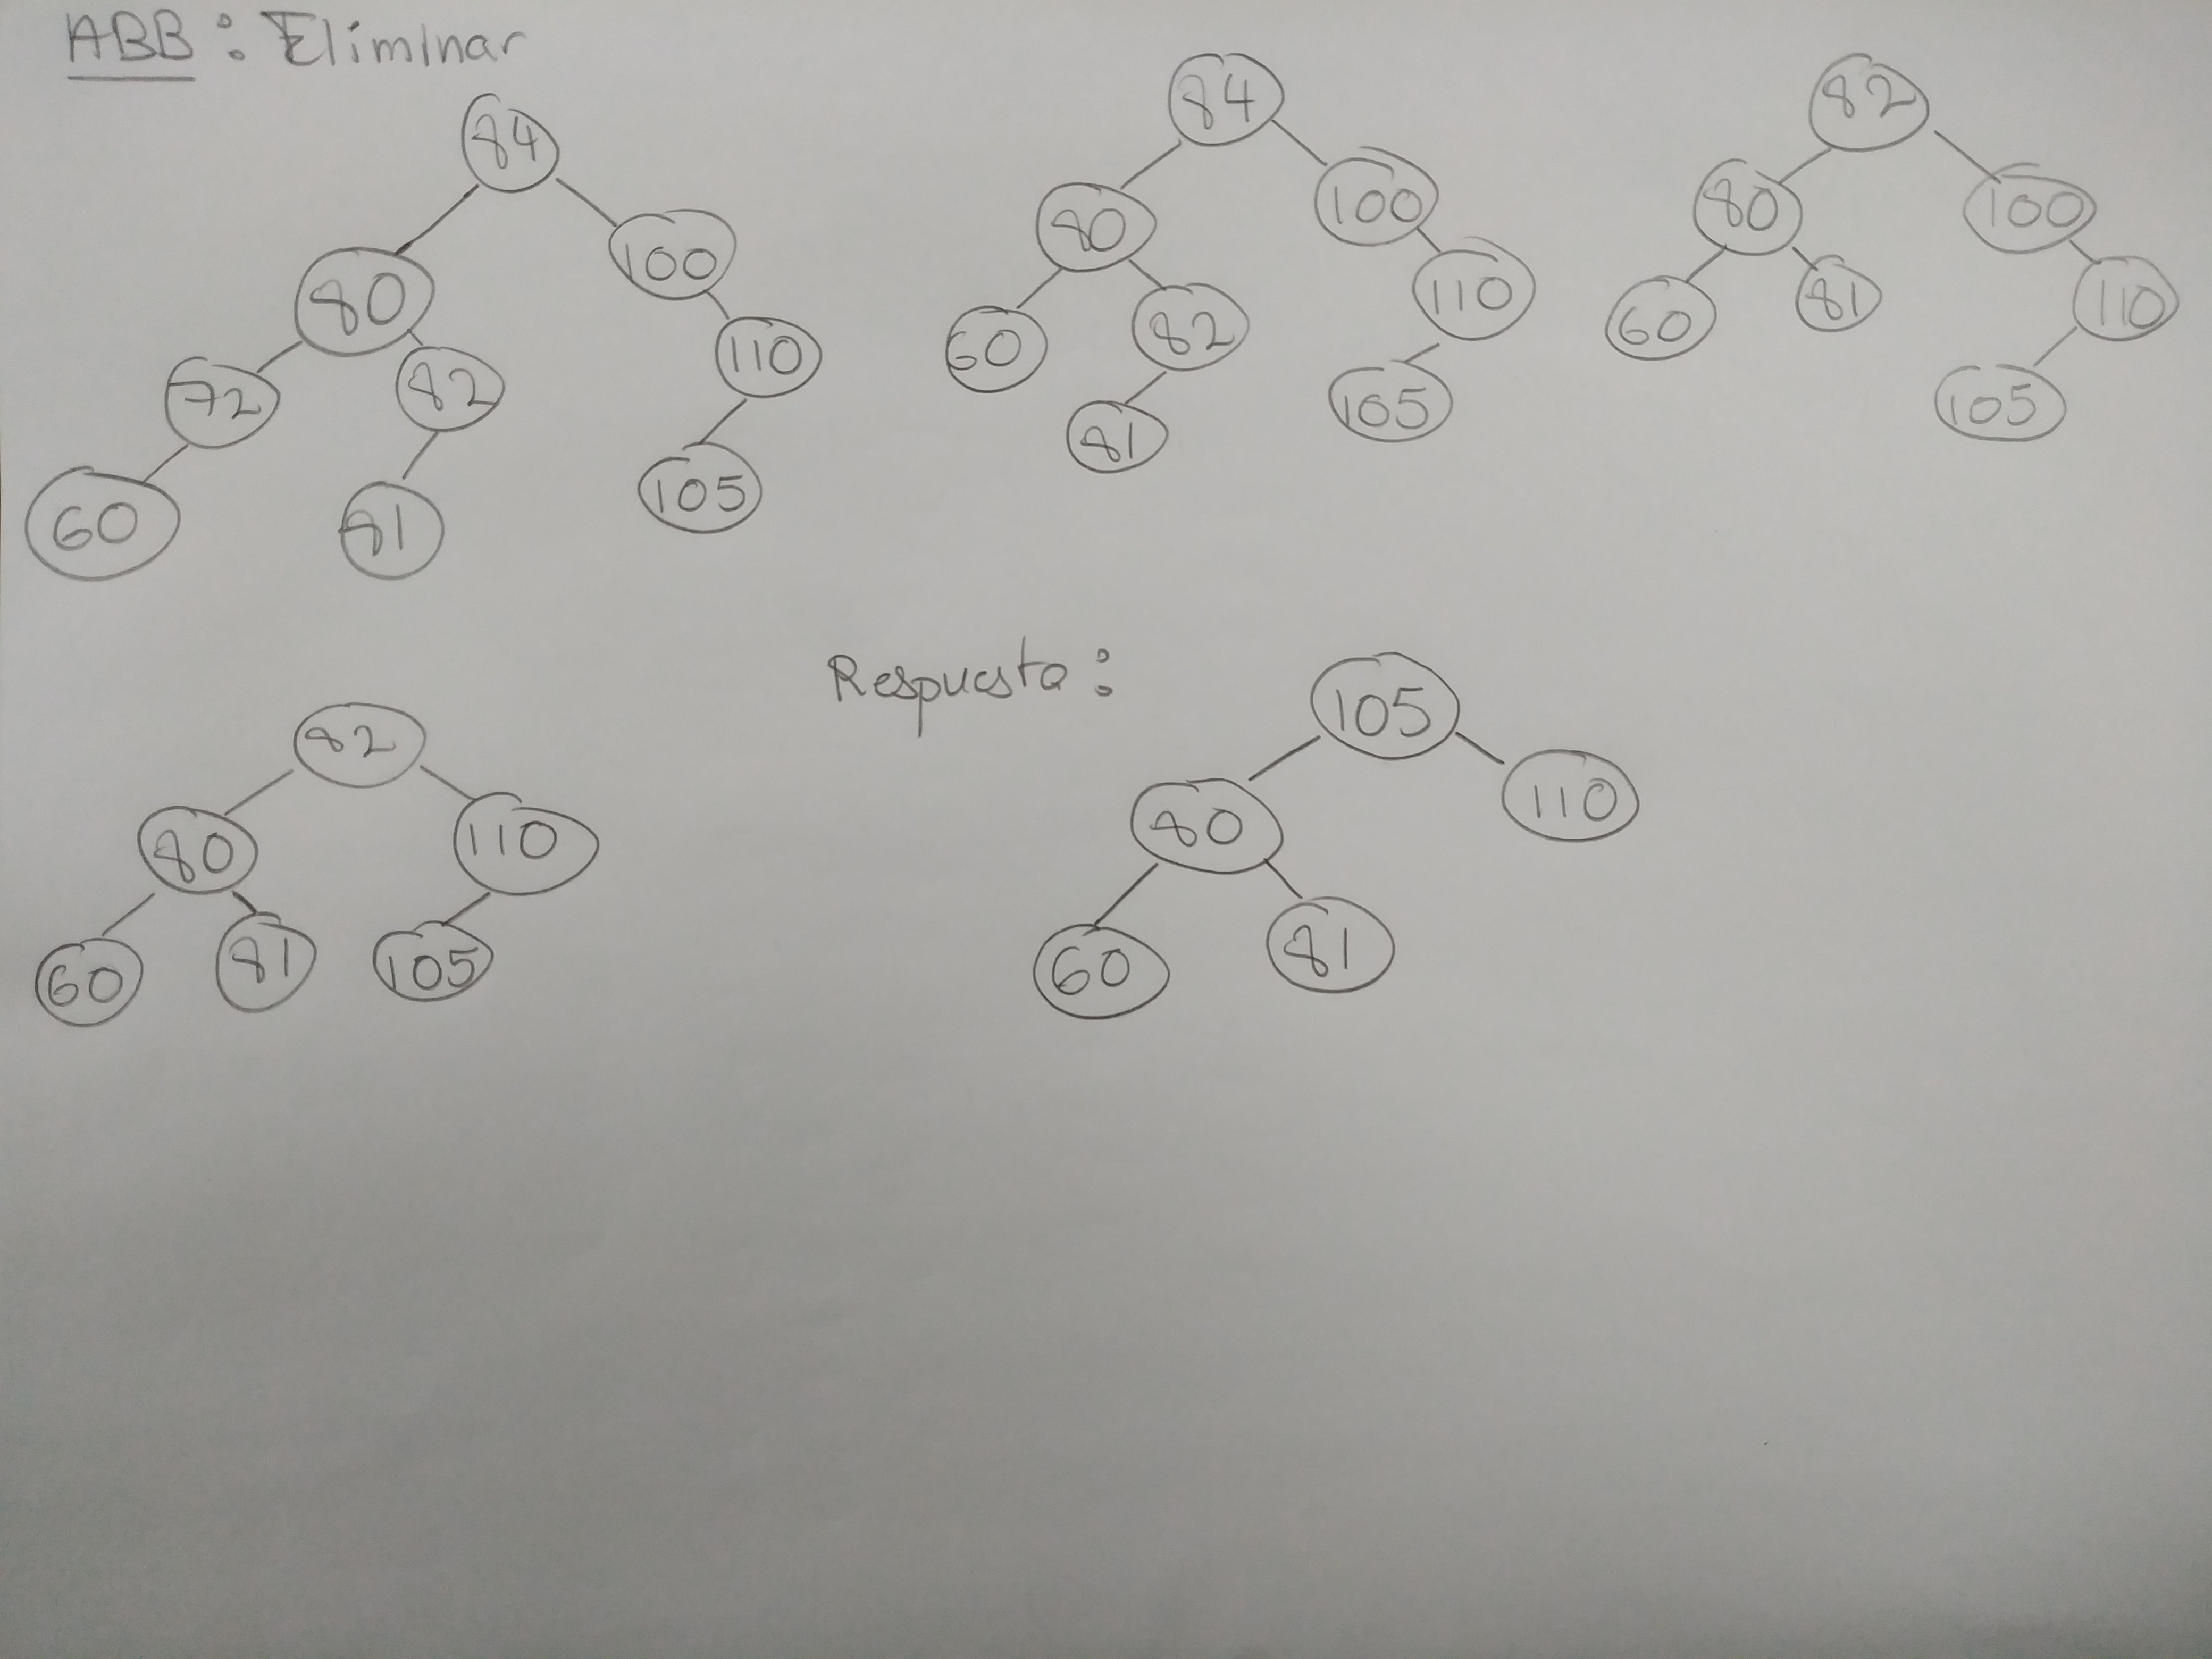 ABB: Eliminar
84
80 100
72 82 110
60 81 105
84
80 100
60 82 110
81 105
82
80 100
60 81 110
105
82
80 110
60 81 105
Respuesta:
105
80 110
60 81